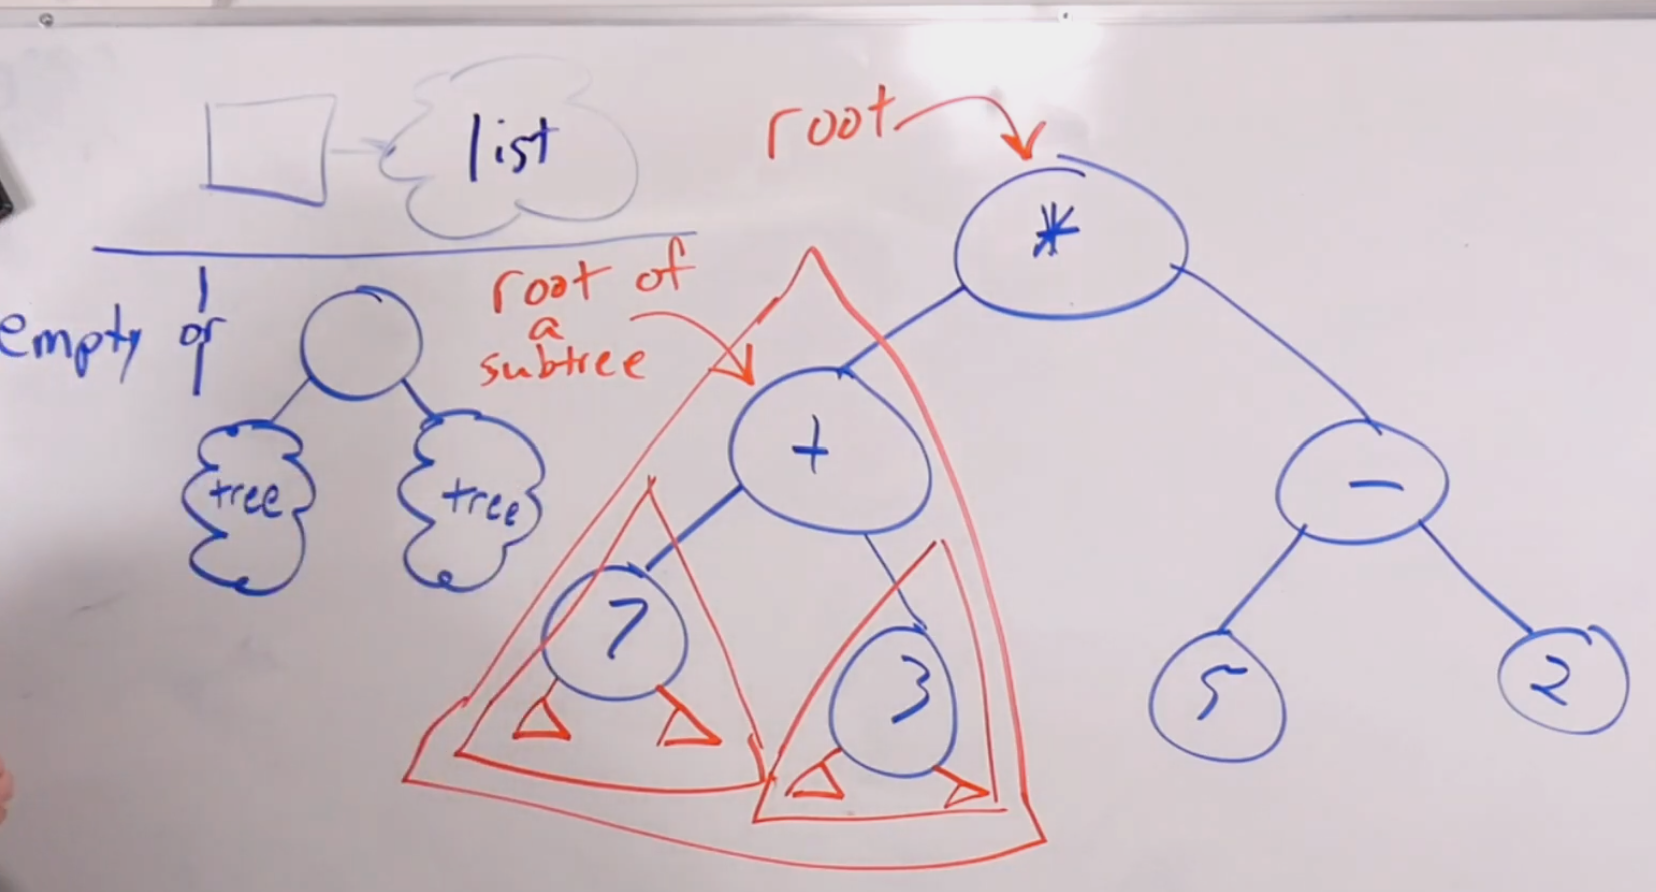 list
root
*
empty or
tree
tree
root of
a
subtree
+
-
7
3
5
2